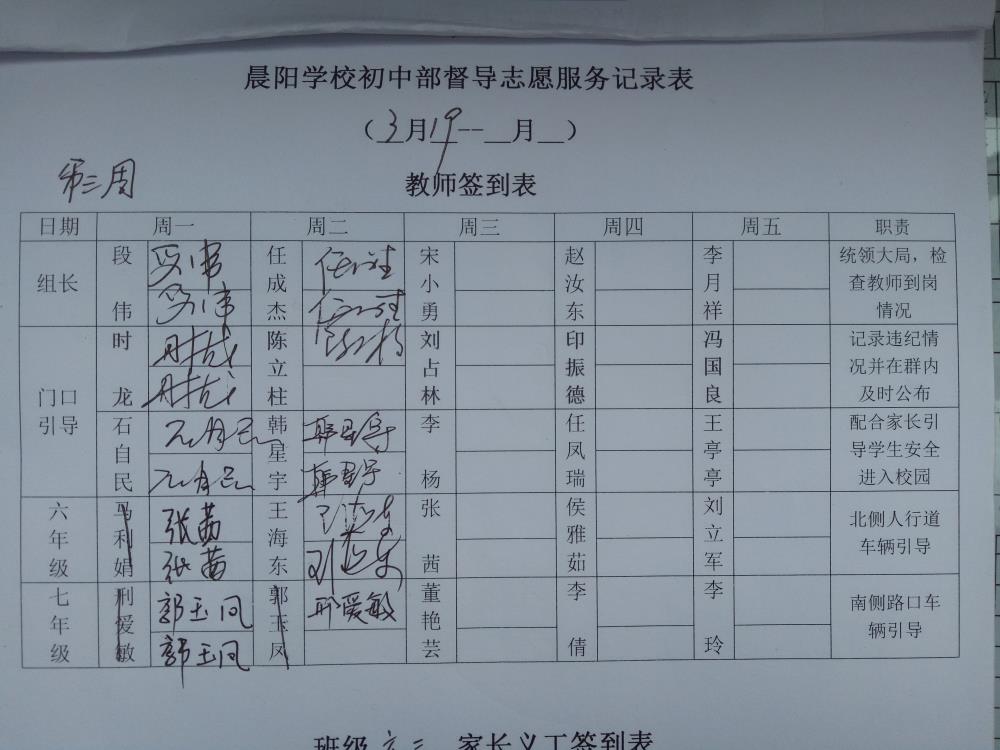 晨阳学校初中部督导志愿服务记录表
（3月19--__月__）
第三周
教师签到表
日期 周一 周二 周三 周四 周五 职责
组长 段伟 段伟 任成杰 宋小勇 赵汝东 李月祥 统领大局，检查教师到岗情况
段伟
门口引导 时龙 时龙 陈立柱 刘占林 印振德 冯国良 记录违纪情况并在群内及时公布
时龙
石自民 石自民 韩星宇 韩星宇 李杨 任凤瑞 王亭亭 配合家长引导学生安全进入校园
石自民 韩星宇
六年级 马利娟 张茜 王海东 王海东 张茜 侯雅茹 刘立军 北侧人行道车辆引导
张茜
七年级 刑爱敏 郭玉凤 郭玉凤 邢爱敏 董艳芸 李倩 李玲 南侧路口车辆引导
郭玉凤
班级 六三 家长义工签到表